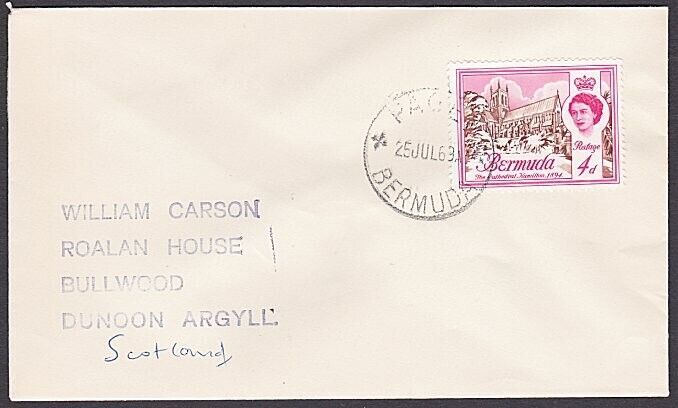 PAGET
25JUL63
BERMUDA
Postage
Bermuda 4d
The Cathedral Hamilton, 1894
WILLIAM CARSON
ROALAN HOUSE
BULLWOOD
DUNOON ARGYLL.
Scotland